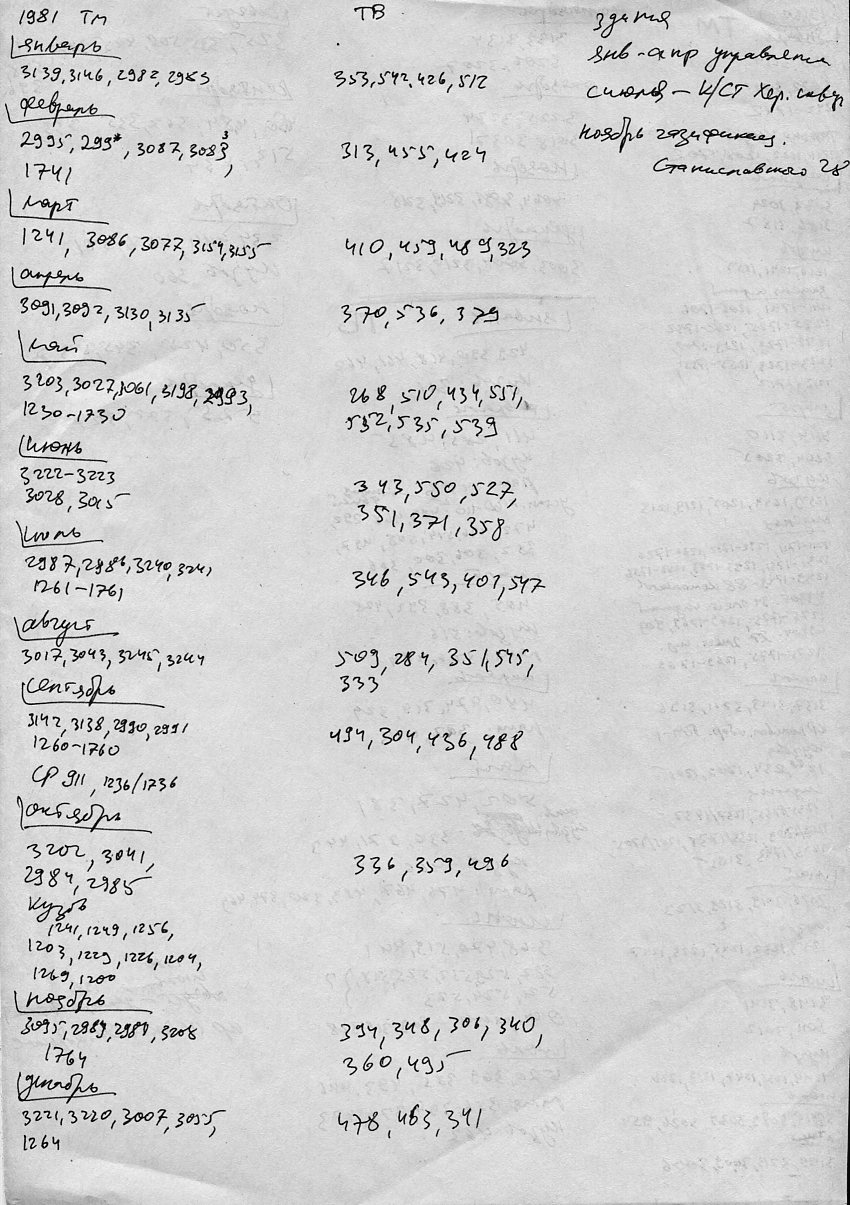 1981 ТМ
ТВ
здания
янв-апр управления
с июля - К/СТ Хер. сквер
ноябрь газификац.
Станиславского 28
январь
3139, 3146, 2982, 2983
353, 542, 426, 512
февраль
2995, 299*, 3087, 3083,
1741
313, 455, 424
март
1241, 3086, 3077, 3154, 3155
410, 459, 489, 323
апрель
3091, 3092, 3130, 3135
370, 536, 379
май
3203, 3027, 3061, 3198, 2993,
1230-1730
268, 510, 434, 551,
532, 535, 539
июнь
3222-3223
3028, 3015
343, 550, 527,
351, 371, 358
июль
2987, 2986, 3240, 3241
1261-1761
346, 543, 401, 547
август
3017, 3043, 3245, 3244
509, 284, 351, 545,
333
сентябрь
3142, 3138, 2990, 2991
1260-1760
СР 911, 1236/1736
494, 304, 436, 488
октябрь
3202, 3041,
2984, 2985
кузов
1241, 1249, 1256,
1203, 1229, 1226, 1204,
1269, 1200
336, 359, 496
ноябрь
3095, 2989, 2988, 3208
1764
394, 348, 306, 340,
360, 495
декабрь
3221, 3220, 3007, 3055,
1264
478, 463, 341